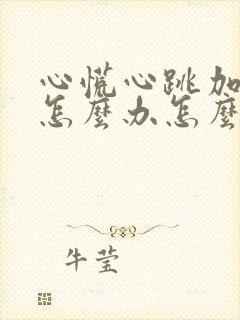 心慌心跳加
怎麼办怎麼
牛莹